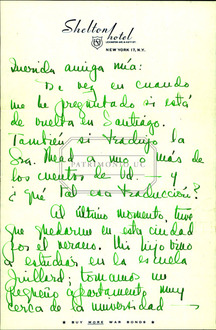 Shelton
hotel
LEXINGTON AVE & 49TH ST
NEW YORK 17, N.Y.
Querida amiga mía:
De vez en cuando
me he preguntado si está
de vuelta en Santiago.
También si tradujo la
Sra. Mead a uno o más
de los cuentos de Ud. y
¿qué tal esa traducción?
Al último momento, tuve
que quedarme en esta ciudad
por el verano. Mi hijo vino
a estudiar en la escuela
Juillard; tomamos un
pequeño apartamento muy
cerca de la universidad
BUY MORE WAR BONDS